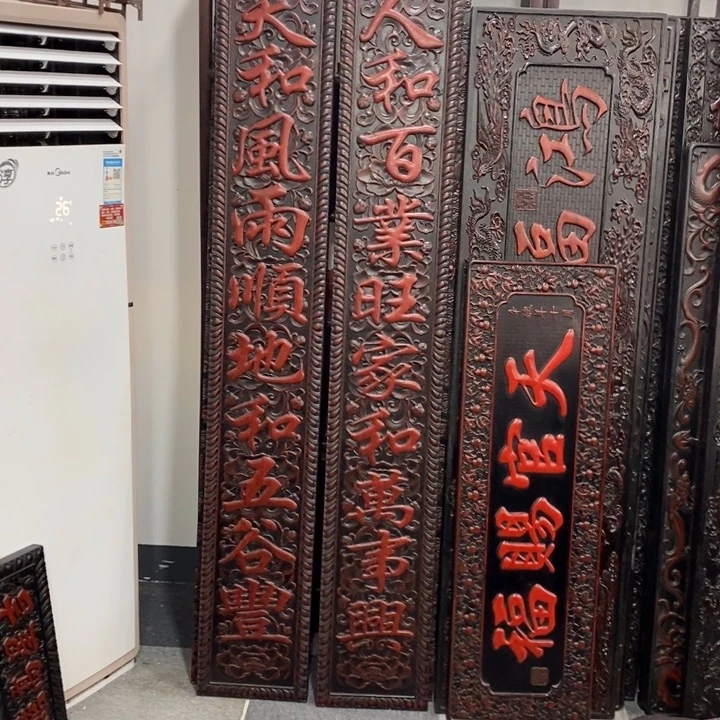 天和風雨順地和五谷豐
人和百業旺家和萬事興
鴻
天官賜福
Midea
26